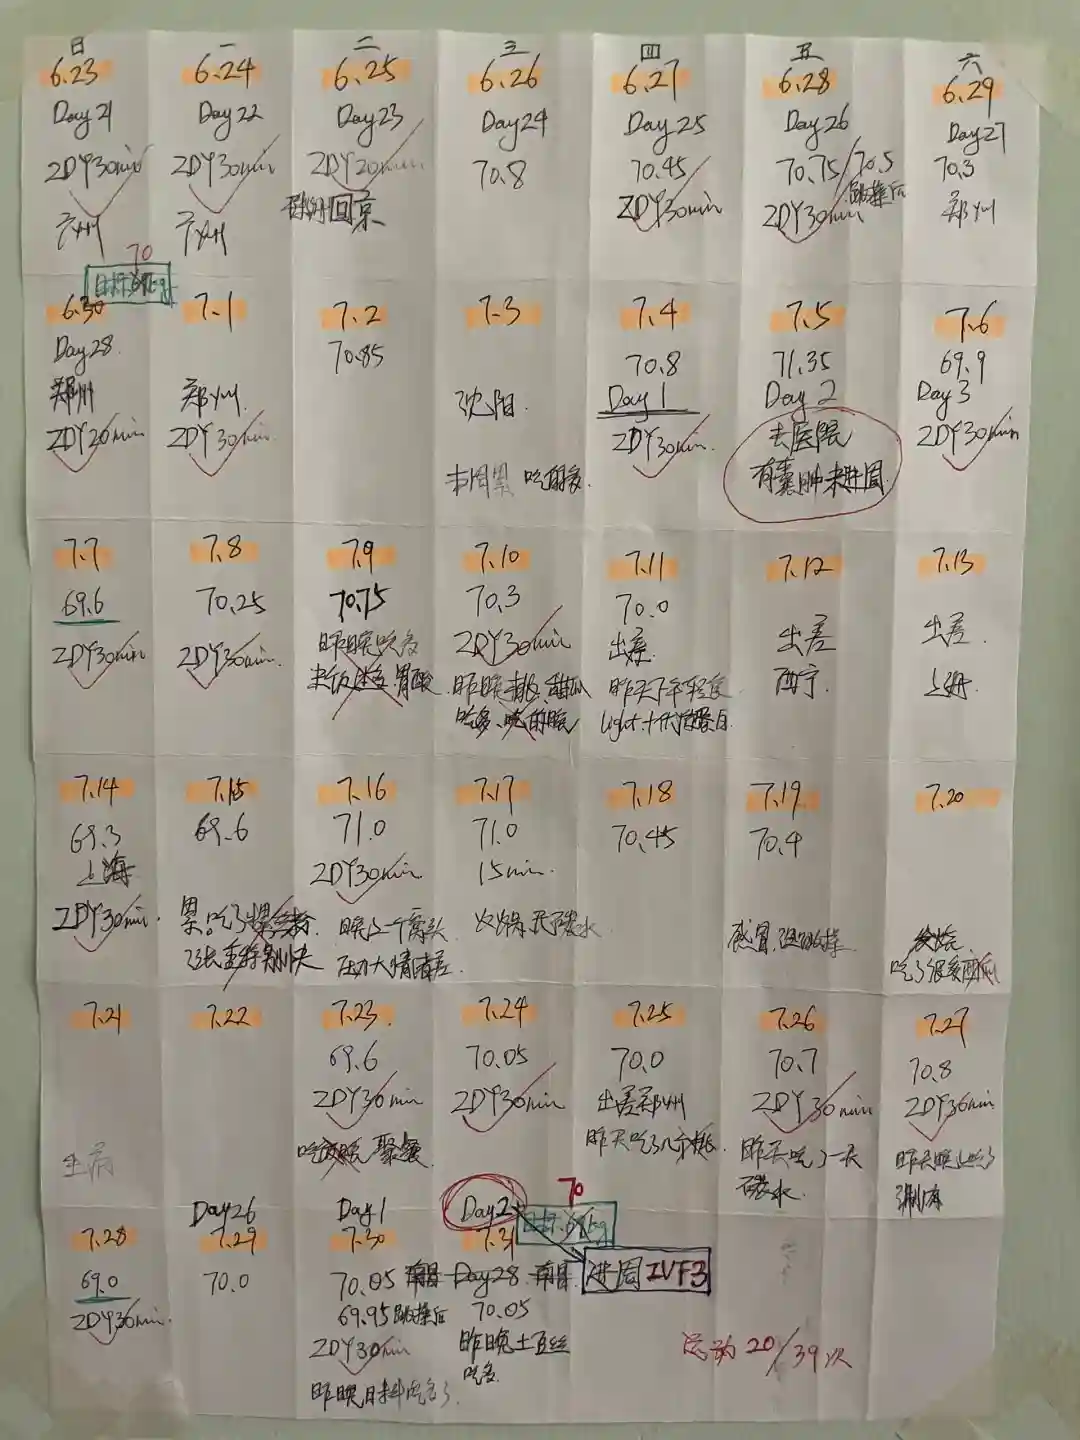 日 一 二 三 四 五 六
6.23
Day21
ZDY30min
广州
6.24
Day22
ZDY30min
广州
6.25
Day23
ZDY20min
回京
6.26
Day24
70.8
6.27
Day25
70.45
ZDY30min
6.28
Day26
70.75/70.5
跳操后
ZDY30min
6.29
Day27
70.3
郑州
70
目标
6.30
Day28
郑州
ZDY20min
7.1
郑州
ZDY30min
7.2
70.85
7.3
沈阳
本周累 吃的多
7.4
70.8
Day1
ZDY30min
7.5
71.35
Day2
去医院
有囊肿未进周
7.6
69.9
Day3
ZDY30min
7.7
69.6
ZDY30min
7.8
70.25
ZDY30min
7.9
70.75
昨晚吃多
胃酸
7.10
70.3
ZDY30min
昨晚 甜瓜
吃多、吃的晚
7.11
70.0
出差
昨天下午轻食
light+代 蛋白
7.12
出差
西宁
7.13
出差
上海
7.14
69.3
上海
ZDY30min
7.15
69.6
累。吃了
7.16
71.0
ZDY30min
晚上一个窝头
压力大情绪差
7.17
71.0
15min
火锅 无碳水
7.18
70.45
7.19
70.4
感冒,没跳操
7.20
发烧
吃了很多西瓜
7.21
生病
7.22
7.23
69.6
ZDY30min
吃 晚 聚餐
7.24
70.05
ZDY30min
7.25
70.0
出差郑州
昨天吃了几个桃
7.26
70.7
ZDY30min
昨天吃了一天
碳水
7.27
70.8
ZDY30min
昨天晚上吃了
涮肉
7.28
69.0
ZDY30min
Day26
7.29
70.0
Day1
7.30
70.05
69.95 跳操后
ZDY30min
昨晚日料吃多了
Day2
7.31
Day28
70.05
昨晚土豆丝
吃多
70
目标
进周IVF3
运动 20/39次